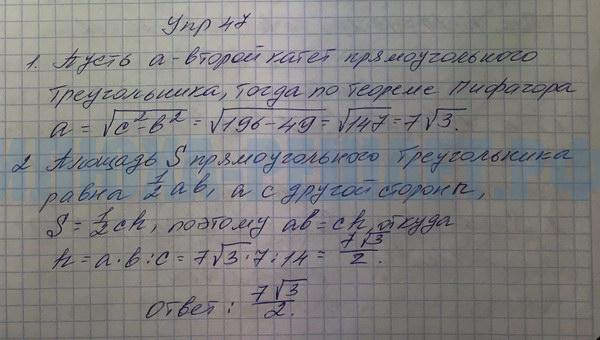 Упр 47
1. Пусть a - второй катет прямоугольного
треугольника, тогда по теореме Пифагора
a = √(c² - b²) = √(196 - 49) = √147 = 7√3.
2 Площадь S прямоугольного треугольника
равна 1/2 ab, а с другой стороны,
S = 1/2 ch, поэтому ab = ch, откуда
h = a · b : c = 7√3 · 7 : 14 = 7√3/2.
Ответ: 7√3/2.